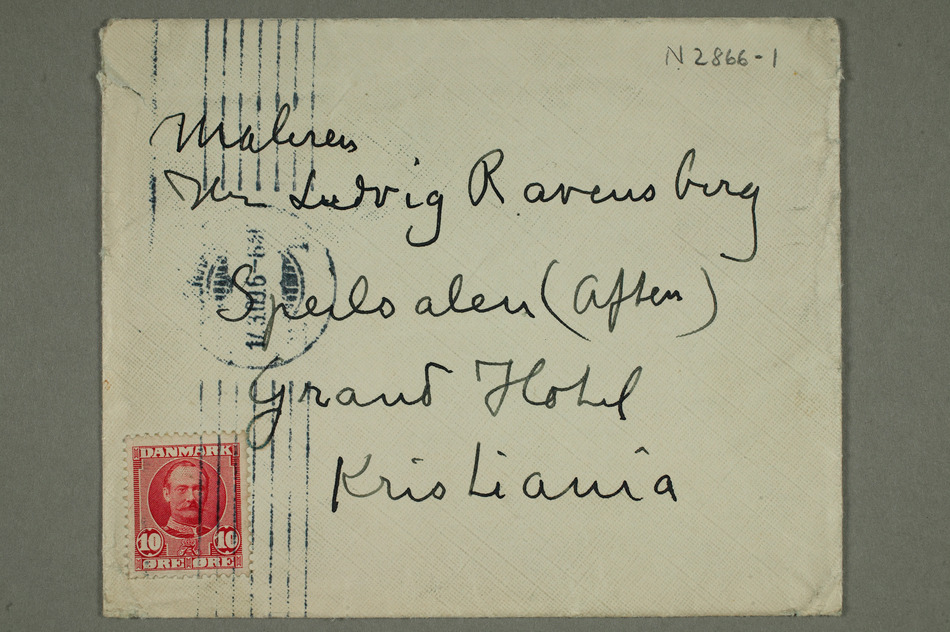 N 2866-1
Maleren
Hr Ludvig Ravensberg
Speilsalen (Aften)
Grand Hotel
Kristiania
DANMARK
10 10
ØRE ØRE